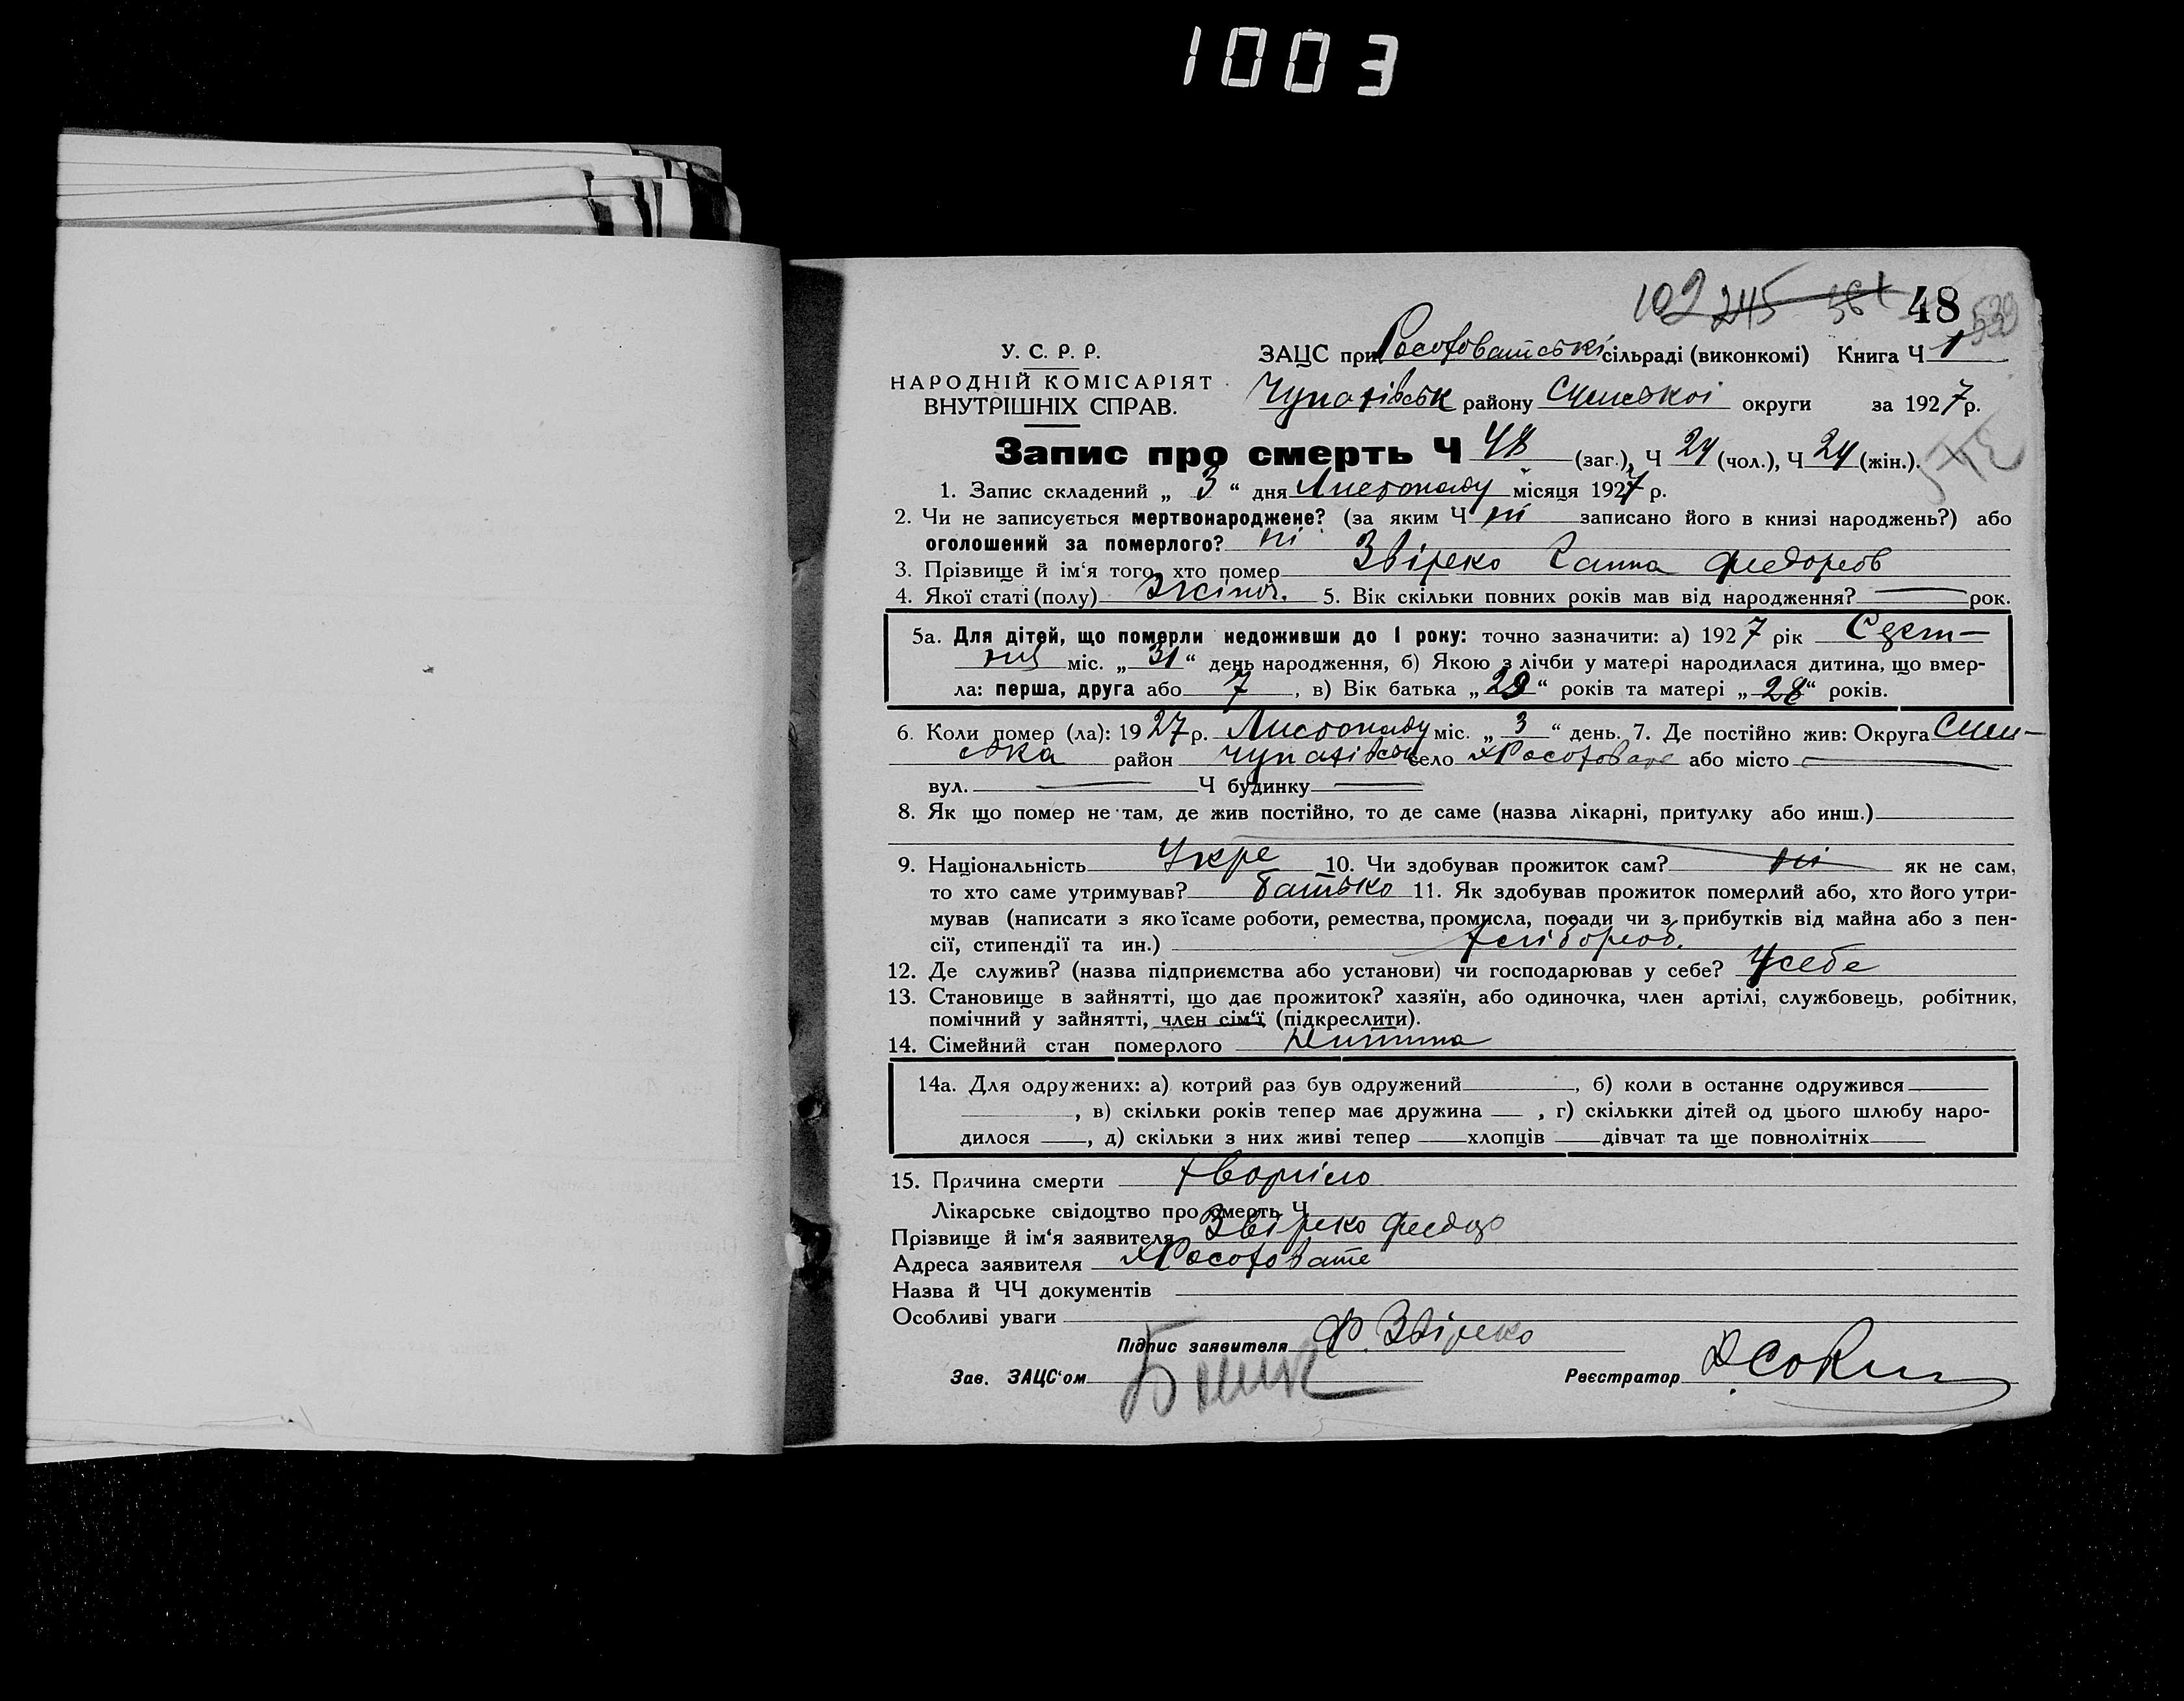 1003
102 245 48
У. С. Р. Р.
НАРОДНІЙ КОМІСАРІЯТ
ВНУТРІШНІХ СПРАВ.
ЗАЦС при сільраді (виконкомі) Книга Ч 1
району Сумської округи за 1927 р.
Запис про смерть Ч 48 (заг.), Ч 24 (чол.), Ч 24 (жін.).
1. Запис складений „ 3 “ дня Листопаду місяця 1927 р.
2. Чи не записується мертвонароджене? (за яким Ч ні записано його в книзі народжень?) або
оголошений за померлого? ні
3. Прізвище й ім‘я того, хто помер Звірко Ганна Федоров
4. Якої статі (полу) Жіноч. 5. Вік скільки повних років мав від народження? — рок.
5а. Для дітей, що померли недоживши до 1 року: точно зазначити: а) 1927 рік
міс. „ 31 “ день народження, б) Якою з лічби у матері народилася дитина, що вмер-
ла: перша, друга або 7, в) Вік батька „ 29 “ років та матері „ 28 “ років.
6. Коли помер (ла): 1927 р. Листопаду міс. „ 3 “ день. 7. Де постійно жив: Округа Сум-
ска район село або місто —
вул. — Ч будинку —
8. Як що помер не там, де жив постійно, то де саме (назва лікарні, притулку або инш.)
9. Національність Укре 10. Чи здобував прожиток сам? ні як не сам,
то хто саме утримував? батько 11. Як здобував прожиток померлий або, хто його утри-
мував (написати з яко їсаме роботи, ремества, промисла, посади чи з прибутків від майна або з пен-
сії, стипендії та ин.) хліборов.
12. Де служив? (назва підприємства або установи) чи господарював у себе? Усебе
13. Становище в зайнятті, що дає прожиток? хазяїн, або одиночка, член артілі, службовець, робітник,
помічний у зайнятті, член сім‘ї (підкреслити).
14. Сімейний стан померлого дитина
14а. Для одружених: а) котрий раз був одружений , б) коли в останнє одружився
, в) скільки років тепер має дружина , г) скількки дітей од цього шлюбу наро-
дилося , д) скільки з них живі тепер хлопців дівчат та ще повнолітніх
15. Причина смерти хворіло
Лікарське свідоцтво про смерть Ч
Прізвище й ім‘я заявителя Звірко Федор
Адреса заявителя
Назва й ЧЧ документів
Особливі уваги
Підпис заявителя Ф. Звірко
Зав. ЗАЦС‘ом
Реєстратор